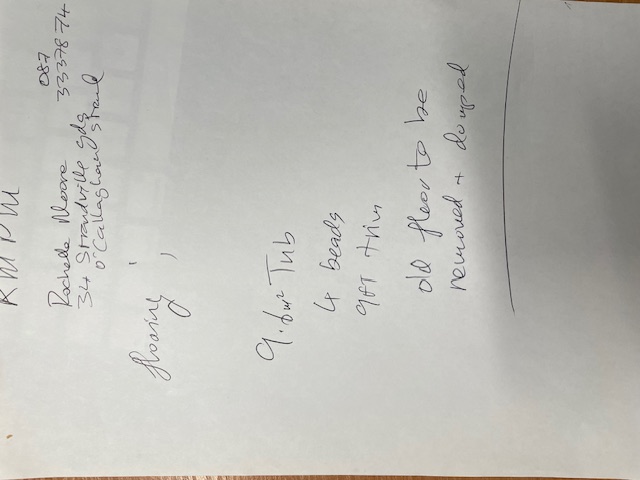 RMPM
Rochelle Moore 087
34 Strandville gds 3337874
O'Callaghan Strand
flooring ;
9.6m² Tub
4 beads
9ft trim
old floor to be
removed + dumped